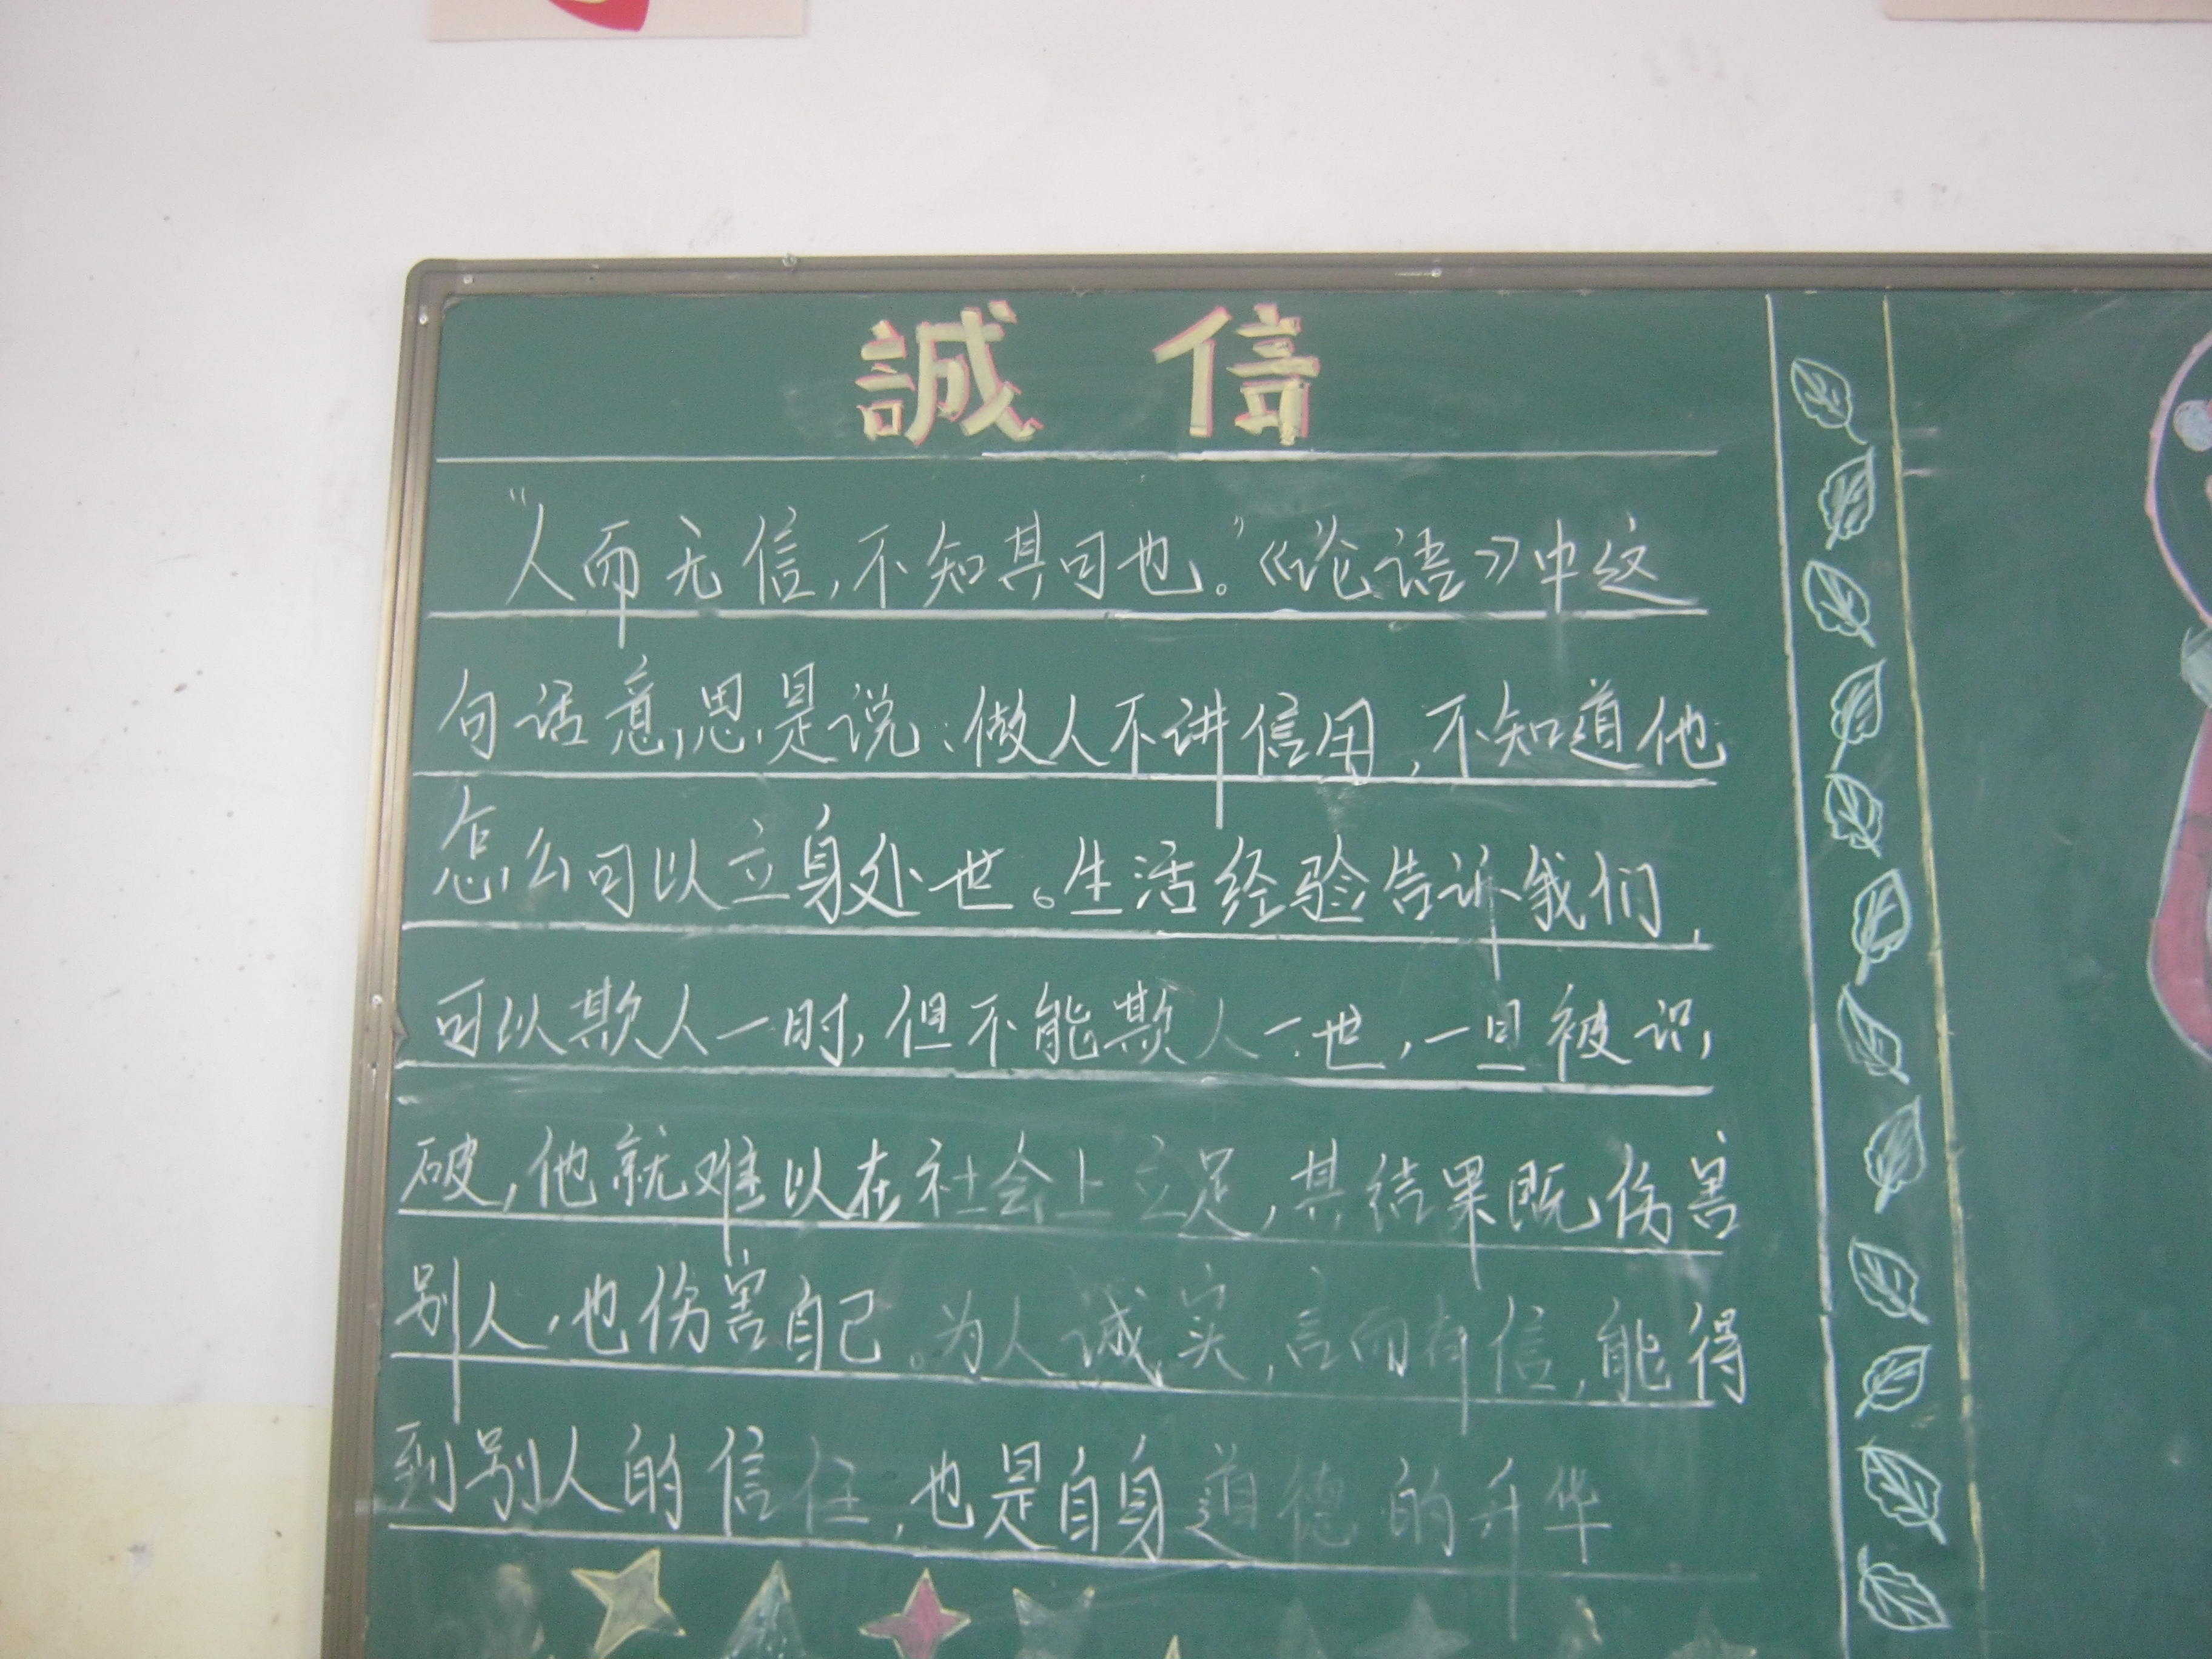 誠信
“人而无信,不知其可也。”《论语》中这
句话意思是说:做人不讲信用,不知道他
怎么可以立身处世。生活经验告诉我们,
可以欺人一时,但不能欺人一世,一旦被识
破,他就难以在社会上立足,其结果既伤害
别人,也伤害自己。为人诚实,言而有信,能得
到别人的信任,也是自身道德的升华